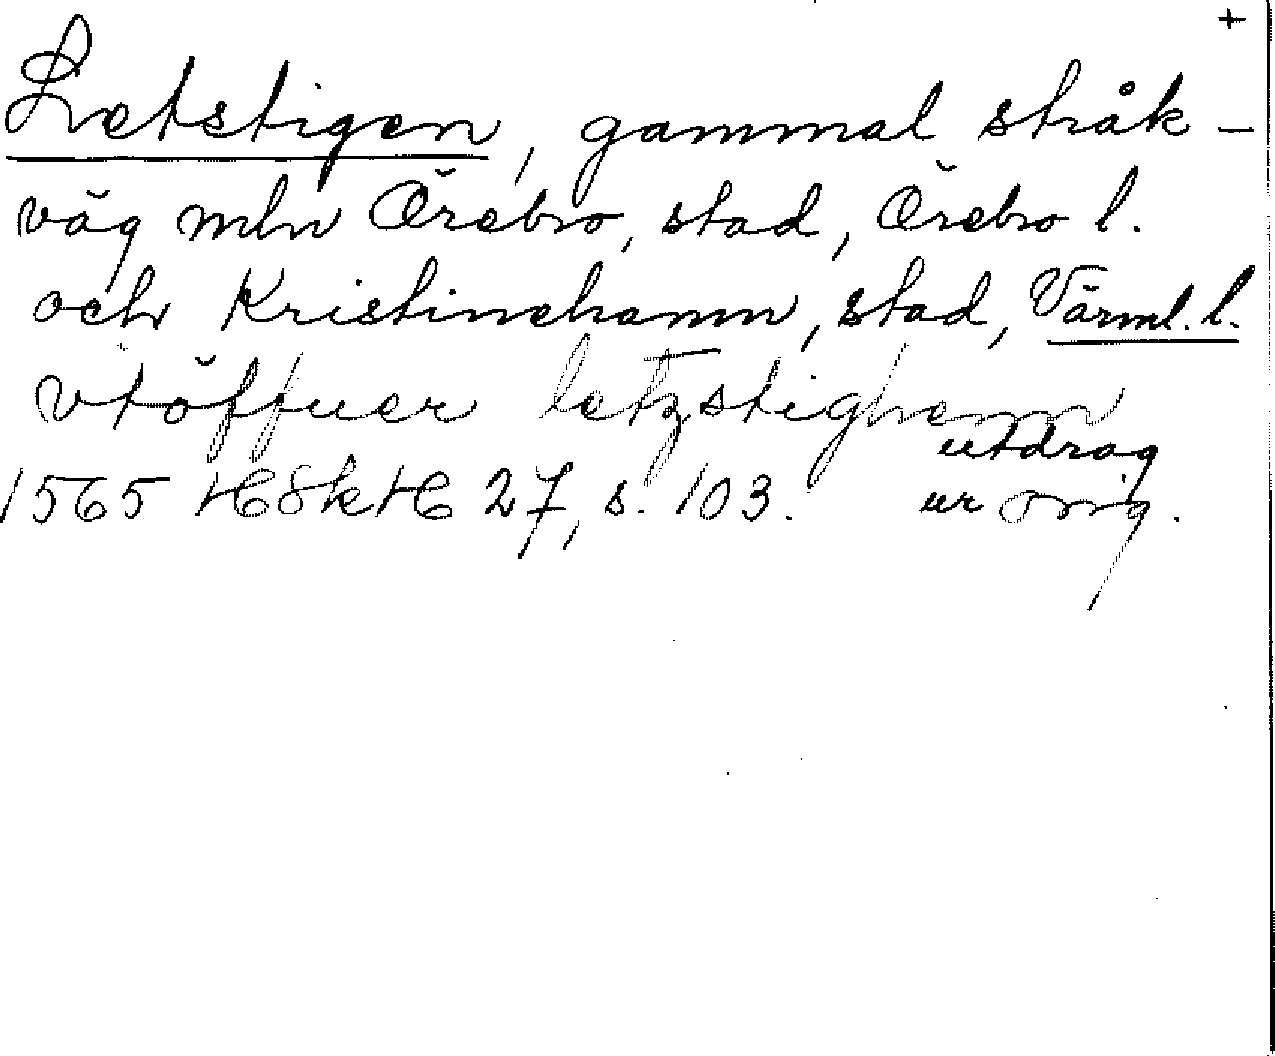 +
Letstigen, gammal stråk-
väg mln Örebro, stad, Örebro l.
och Kristinehamn, stad, Värml. l.
vtöffuer letzstighenn
utdrag
1565 HSkH 27, s. 103. ur orig.